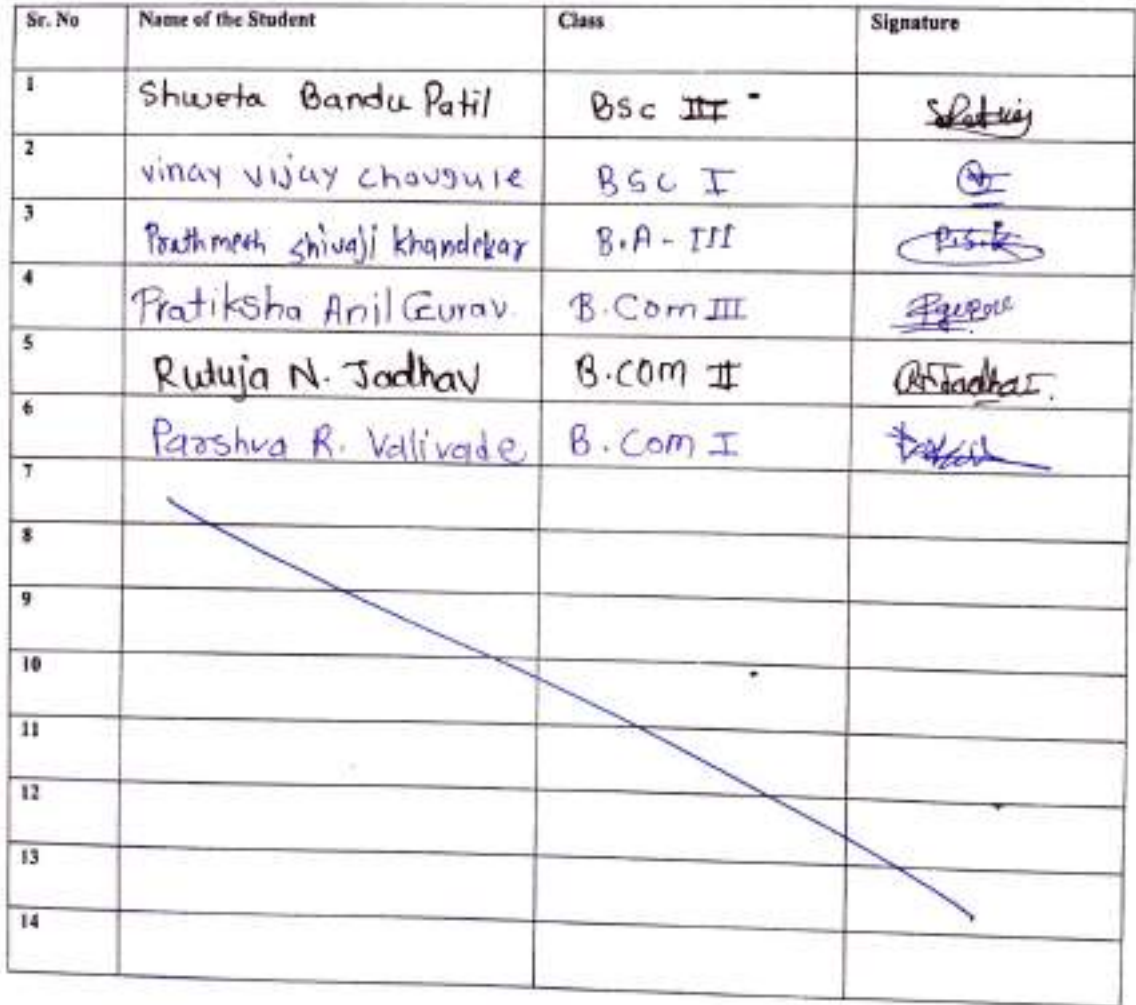 Sr. No Name of the Student Class Signature
1 Shweta Bandu Patil BSc III
2 vinay vijay chougule BSC I
3 Prathmesh shivaji khandekar B.A - III P.S.K
4 Pratiksha Anil Gurav. B.Com III
5 Rutuja N. Jadhav B.COM II RNJadhav.
6 Parshva R. Valivade B.Com I
7
8
9
10
11
12
13
14